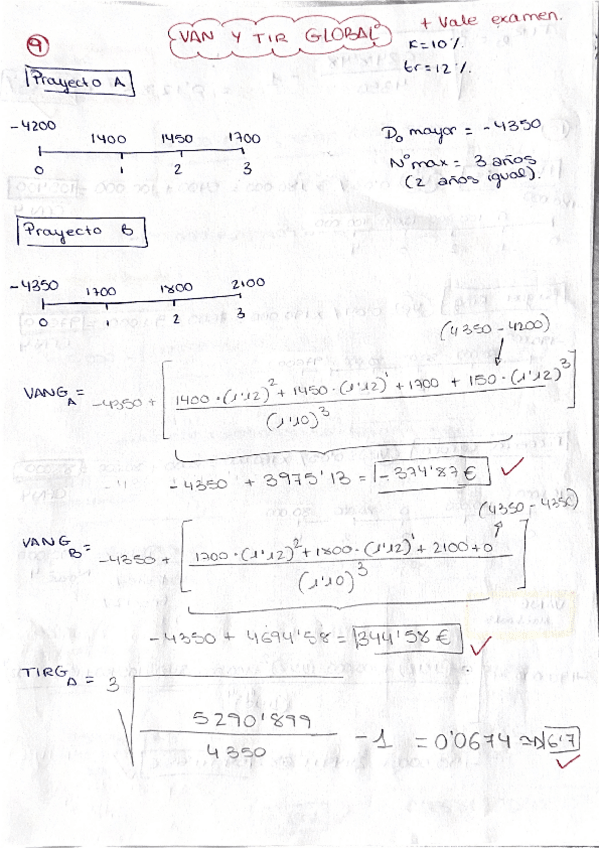 9
VAN Y TIR GLOBAL
+ Vale examen.
K=10%
tr=12%
Proyecto A
-4200 1400 1450 1700
0 1 2 3
Do mayor = -4350
Nº max = 3 años
(2 años igual).
Proyecto B
-4350 1700 1800 2100
0 1 2 3
(4350-4200)
VANG A = -4350 + [1400·(1'12)² + 1450·(1'12)¹ + 1700 + 150·(1'12)³]
(1'10)³
-4350 + 3975'13 = -374'87€ ✓
(4350-4350)
VANG B = -4350 + [1700·(1'12)² + 1800·(1'12)¹ + 2100+0]
(1'10)³
-4350 + 4694'58 = 344'58€ ✓
TIRG A = 3√ 5290'899
4350 -1 = 0'0674 ≈ 6'7 ✓